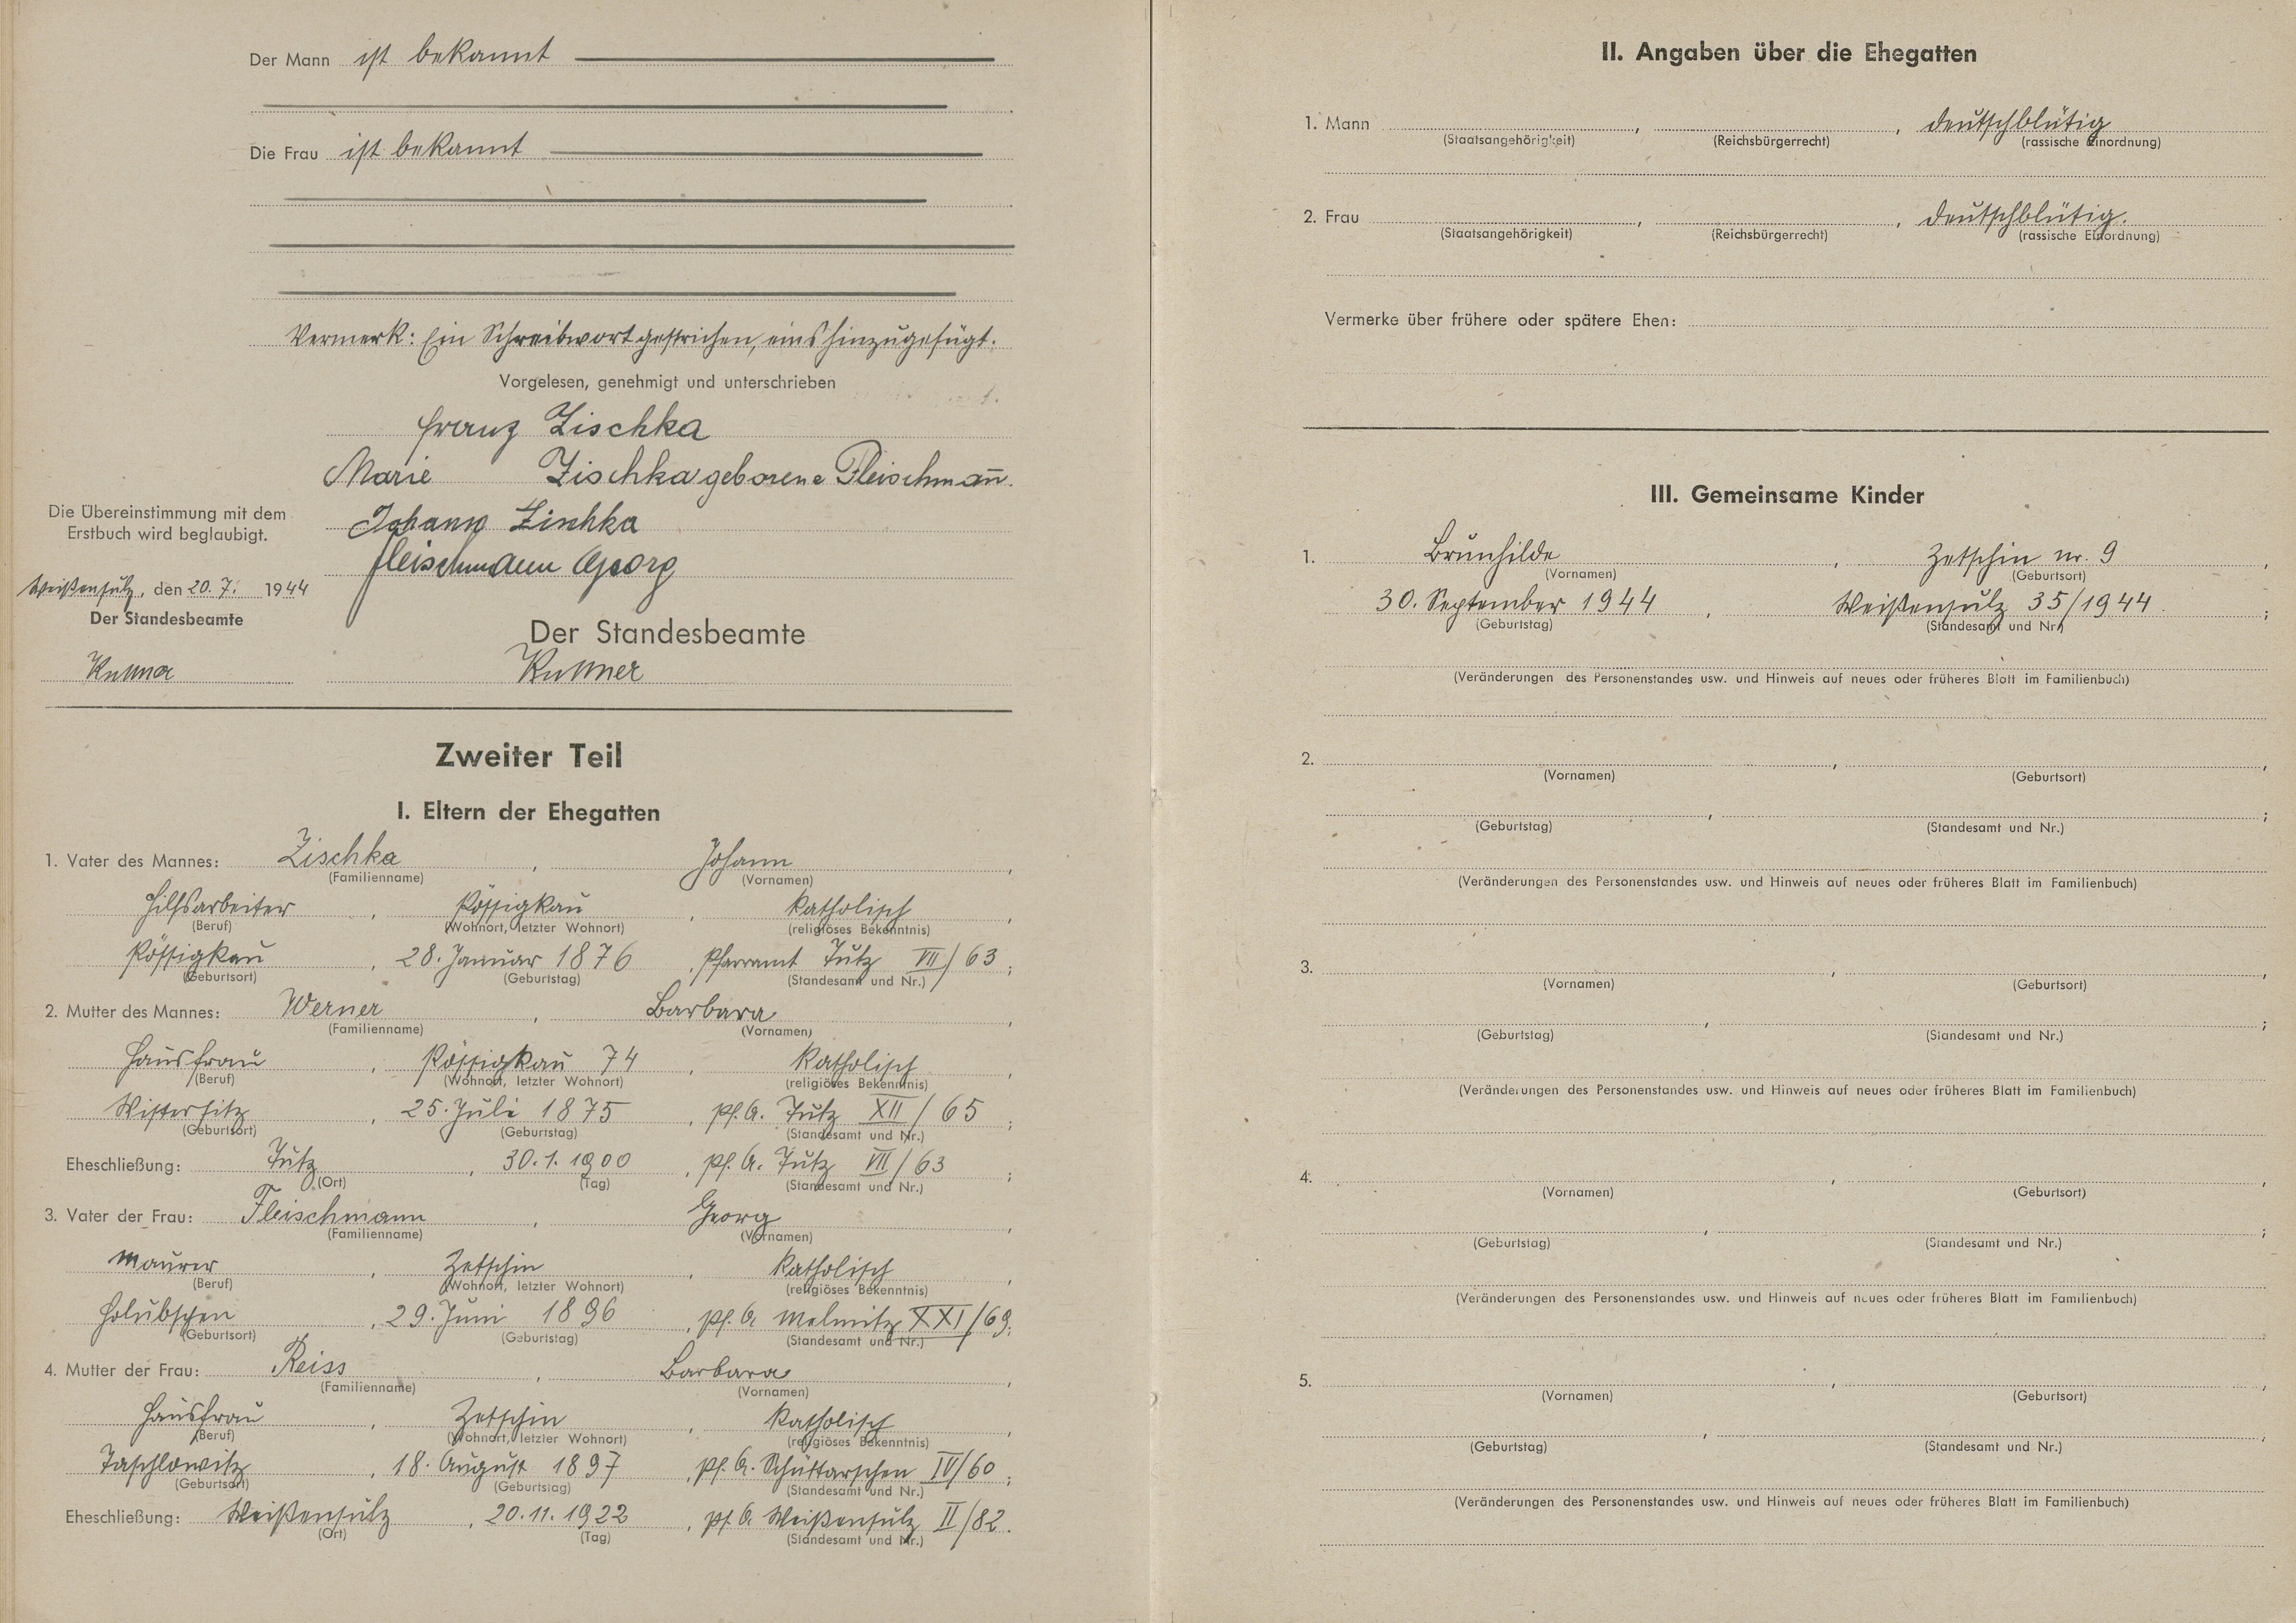 Der Mann ist bekannt
Die Frau ist bekannt
Vermerk: Ein Schreibwort gestrichen, eins hinzugefügt.
Vorgelesen, genehmigt und unterschrieben
Franz Zischka
Marie Zischka geborene Fleischmann̄.
Johann Zischka
Fleischmann Georg
Die Übereinstimmung mit dem
Erstbuch wird beglaubigt.
Weißensulz, den 20. 7. 1944
Der Standesbeamte
Der Standesbeamte
Zweiter Teil
I. Eltern der Ehegatten
1. Vater des Mannes: Zischka, Johann,
(Familienname) (Vornamen)
Hilfsarbeiter, Pössigkau, katholisch,
(Beruf) (Wohnort, letzter Wohnort) (religiöses Bekenntnis)
Pössigkau, 28. Januar 1876, Pfarramt Tutz VII/63;
(Geburtsort) (Geburtstag) (Standesamt und Nr.)
2. Mutter des Mannes: Werner, Barbara,
(Familienname) (Vornamen)
Hausfrau, Pössigkau 74, katholisch,
(Beruf) (Wohnort, letzter Wohnort) (religiöses Bekenntnis)
Wistersitz, 25. Juli 1875, Pf. A. Tutz XII/65;
(Geburtsort) (Geburtstag) (Standesamt und Nr.)
Eheschließung: Tutz, 30. 1. 1900, Pf. A. Tutz VII/63;
(Ort) (Tag) (Standesamt und Nr.)
3. Vater der Frau: Fleischmann, Georg,
(Familienname) (Vornamen)
Maurer, Zetschin, katholisch,
(Beruf) (Wohnort, letzter Wohnort) (religiöses Bekenntnis)
Holubschen, 29. Juni 1896, Pf. A. Melmitz XXI/69;
(Geburtsort) (Geburtstag) (Standesamt und Nr.)
4. Mutter der Frau: Reiss, Barbara,
(Familienname) (Vornamen)
Hausfrau, Zetschin, katholisch,
(Beruf) (Wohnort, letzter Wohnort) (religiöses Bekenntnis)
Taschlowitz, 18. August 1897, Pf. A. Schüttarschen IV/60;
(Geburtsort) (Geburtstag) (Standesamt und Nr.)
Eheschließung: Weißensulz, 20. 11. 1922, Pf. A. Weißensulz II/82.
(Ort) (Tag) (Standesamt und Nr.)
II. Angaben über die Ehegatten
1. Mann , , deutschblütig
(Staatsangehörigkeit) (Reichsbürgerrecht) (rassische Einordnung)
2. Frau , , deutschblütig.
(Staatsangehörigkeit) (Reichsbürgerrecht) (rassische Einordnung)
Vermerke über frühere oder spätere Ehen:
III. Gemeinsame Kinder
1. Brunhilde, Zetschin nr. 9,
(Vornamen) (Geburtsort)
30. September 1944, Weißensulz 35/1944.;
(Geburtstag) (Standesamt und Nr.)
(Veränderungen des Personenstandes usw. und Hinweis auf neues oder früheres Blatt im Familienbuch)
2. , ,
(Vornamen) (Geburtsort)
, ;
(Geburtstag) (Standesamt und Nr.)
(Veränderungen des Personenstandes usw. und Hinweis auf neues oder früheres Blatt im Familienbuch)
3. , ,
(Vornamen) (Geburtsort)
, ;
(Geburtstag) (Standesamt und Nr.)
(Veränderungen des Personenstandes usw. und Hinweis auf neues oder früheres Blatt im Familienbuch)
4. , ,
(Vornamen) (Geburtsort)
, ;
(Geburtstag) (Standesamt und Nr.)
(Veränderungen des Personenstandes usw. und Hinweis auf neues oder früheres Blatt im Familienbuch)
5. , ,
(Vornamen) (Geburtsort)
, ;
(Geburtstag) (Standesamt und Nr.)
(Veränderungen des Personenstandes usw. und Hinweis auf neues oder früheres Blatt im Familienbuch)